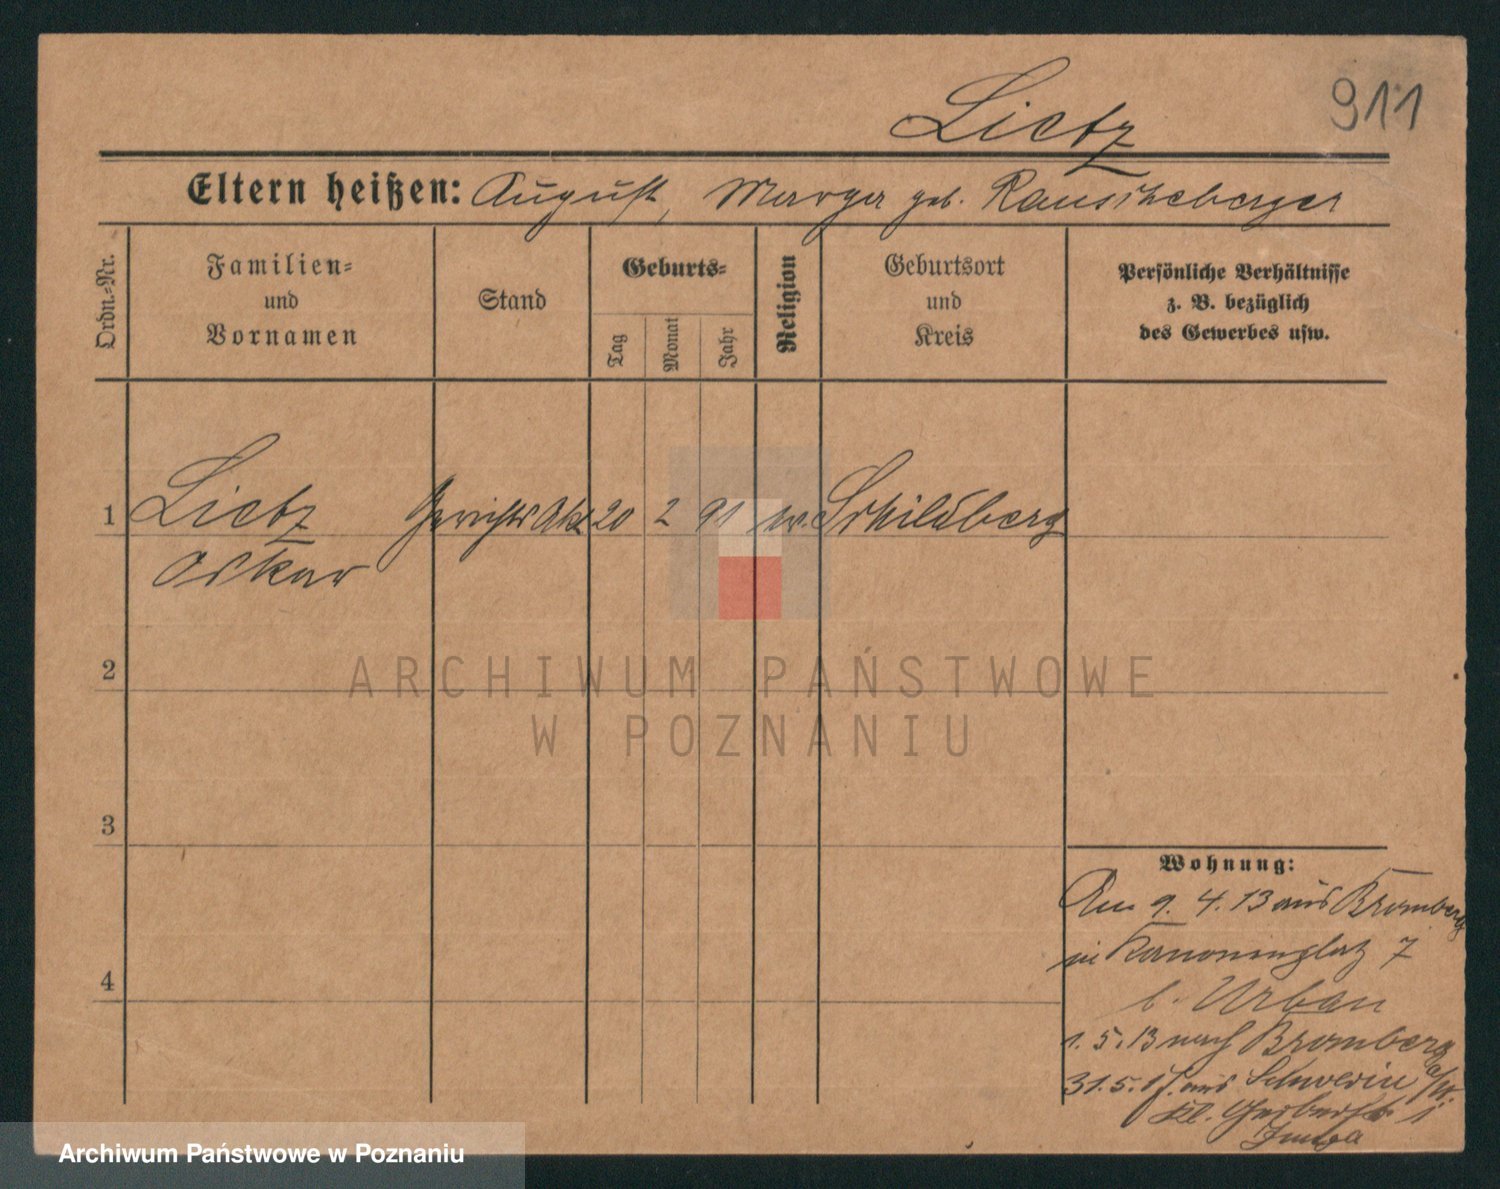 Lietz
911
Eltern heißen: August, geb.
Ordn.-Nr.
Familien-
und
Vornamen
Stand
Geburts-
Tag
Monat
Jahr
Religion
Geburtsort
und
Kreis
Persönliche Verhältnisse
z. B. bezüglich
des Gewerbes usw.
1 Lietz 20 2 91 ev. Schildberg
Oskar
2
3
4
ARCHIWUM PAŃSTWOWE
W POZNANIU
Wohnung:
Am 9. 4. 13 aus Bromberg
in Kanonenplatz 7
b. Urban
1. 5. 13 nach Bromberg
31. 5. aus Schwerin a/W.
Kl. Gerberstr
Archiwum Państwowe w Poznaniu